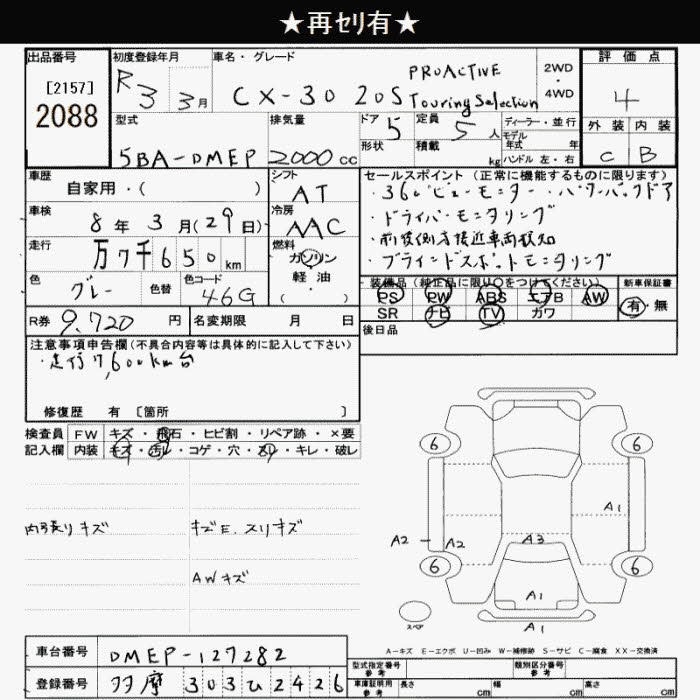 ★再セリ有★
出品番号
[2157]
2088
初度登録年月
R3 3月
車名・グレード
CX-30 20S PROACTIVE Touring Selection
2WD
・
4WD
評価点
4
外装 内装
C B
型式
5BA-DMEP
排気量
2000cc
ドア
5
定員
5人
形状
積載
kg
ディーラー・並行
モデル年式 年
ハンドル 左・右
車歴
自家用・( )
シフト
AT
車検
8年3月(29日)
冷房
AAC
走行
万7千650km
燃料
ガソリン
軽油
・( )
色
グレー
色替
色コード
46G
R券
9,720円
名変期限 月 日
セールスポイント(正常に機能するものに限ります)
・36ビューモニター・パワーバックドア
・ドライバーモニタリング
・前後側方接近車両検知
・ブラインドスポットモニタリング
装備品(純正品に限り○をつけてください)
PS PW ABS エアB AW
SR ナビ TV カワ
新車保証書
有・無
後日品
注意事項申告欄(不具合内容等は具体的に記入して下さい)
・走行7,600km台
修復歴 有 〔箇所 〕
検査員 FW キズ・飛石・ヒビ割・リペア跡・×要
記入欄 内装 キズ・汚レ・コゲ・穴・ヌリ・キレ・破レ
内張りキズ
キズE.スリキズ
AWキズ
6 6
A1
A2 A2 A3
6 6
A1
スペア
A1
A-キズ E-エクボ U-凹み W-補修跡 S-サビ C-腐食 XX-交換済
車台番号
DMEP-127282
登録番号
多摩 303ひ2426
型式指定番号
参考
類別区分番号
参考
車庫証明用
参考
長さ cm 幅 cm 高さ cm